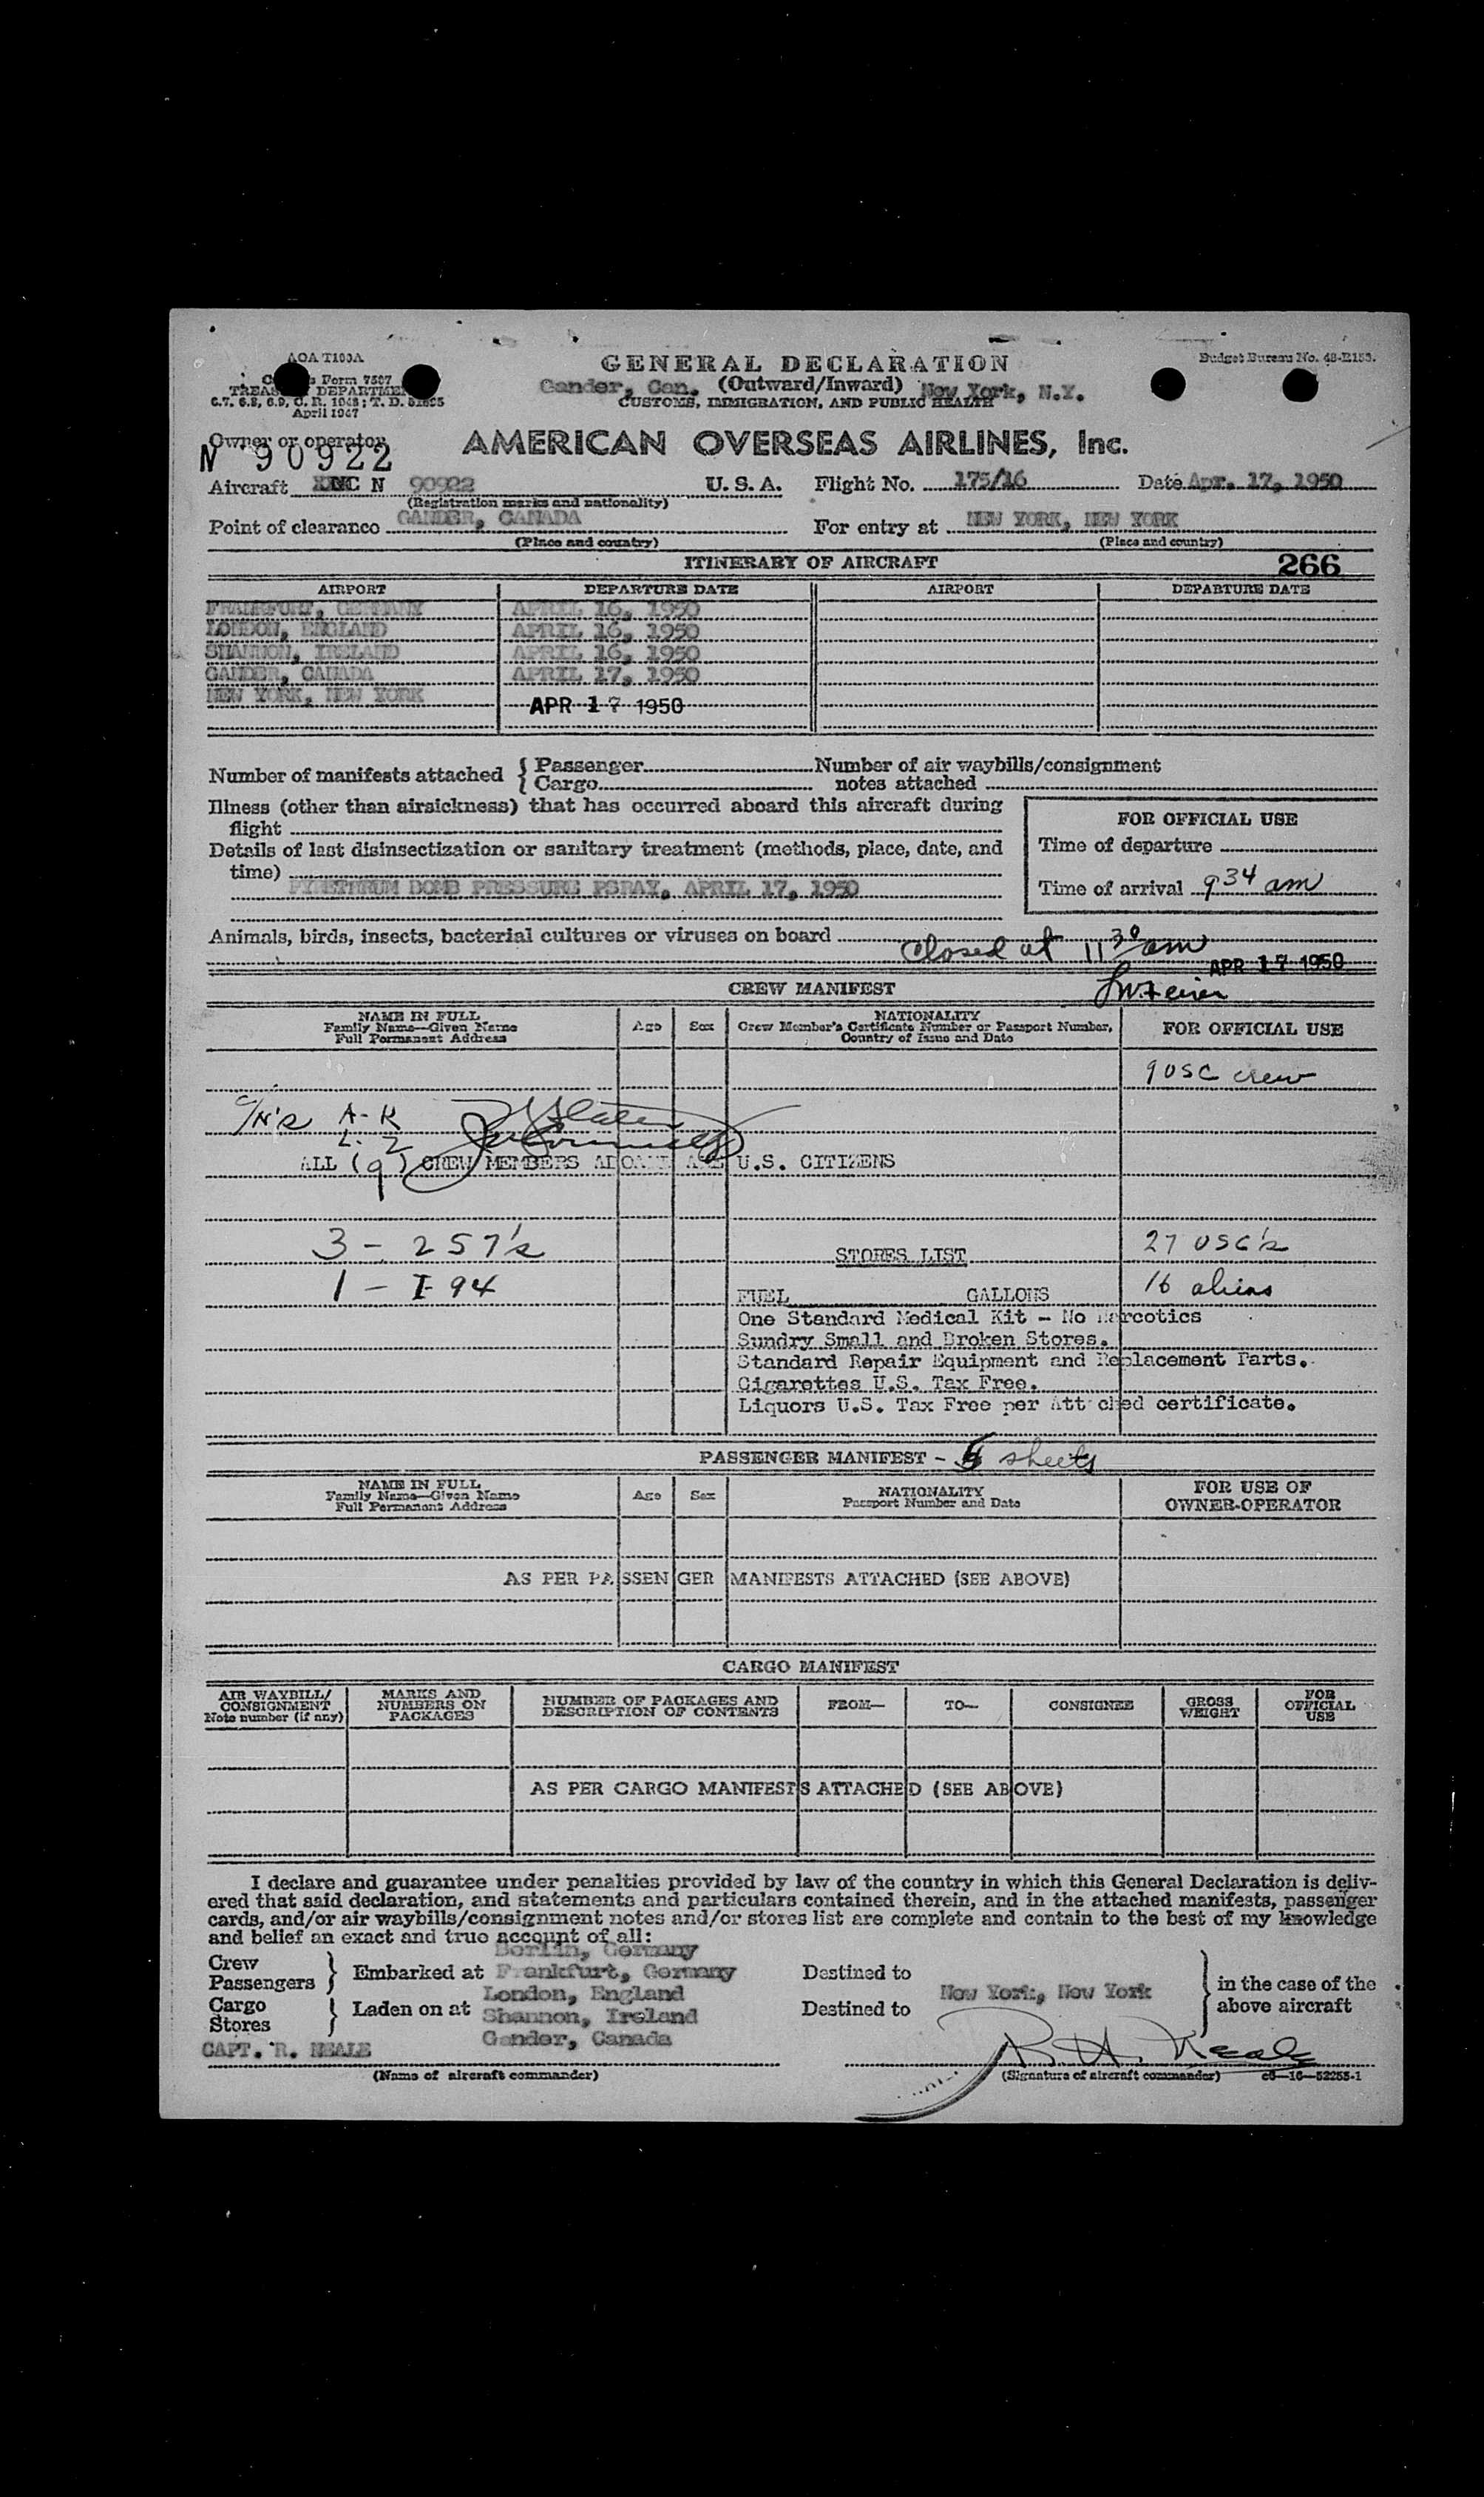 AOA T100A
Form 7507
TREAS DEPARTMEN
April 1947
GENERAL DECLARATION
Budget Bureau No. 48-R153.
Gander, Can. (Outward/Inward) New York, N.Y.
CUSTOMS, IMMIGRATION, AND PUBLIC HEALTH
Owner or operator
N 90922
AMERICAN OVERSEAS AIRLINES, Inc.
Aircraft N 90922 U. S. A. Flight No. 175/16 Date Apr. 17, 1950
(Registration marks and nationality)
Point of clearance GANDER, CANADA For entry at NEW YORK, NEW YORK
(Place and country) (Place and country)
ITINERARY OF AIRCRAFT 266
AIRPORT DEPARTURE DATE AIRPORT DEPARTURE DATE
FRANKFURT, GERMANY APRIL 16, 1950
LONDON, ENGLAND APRIL 16, 1950
SHANNON, IRELAND APRIL 16, 1950
GANDER, CANADA APRIL 17, 1950
NEW YORK, NEW YORK
APR 17 1950
Number of manifests attached { Passenger Number of air waybills/consignment
{ Cargo notes attached
Illness (other than airsickness) that has occurred aboard this aircraft during
flight
FOR OFFICIAL USE
Details of last disinsectization or sanitary treatment (methods, place, date, and
time)
Time of departure
PYRETHRUM BOMB PRESSURE PSRAY, APRIL 17, 1950
Time of arrival 9 34 am
Animals, birds, insects, bacterial cultures or viruses on board
Closed at 11 30 am
APR 17 1950
CREW MANIFEST
NAME IN FULL
Family Name—Given Name
Full Permanent Address
Age Sex
NATIONALITY
Crew Member's Certificate Number or Passport Number,
Country of Issue and Date
FOR OFFICIAL USE
9 USC crew
A-K
L-Z
ALL (9) CREW MEMBERS U.S. CITIZENS
3 - 257's
STORES LIST
27 USC's
1 - I-94
FUEL GALLONS
16 aliens
One Standard Medical Kit - No Narcotics
Sundry Small and Broken Stores.
Standard Repair Equipment and Replacement Parts.
Cigarettes U.S. Tax Free.
Liquors U.S. Tax Free per Attached certificate.
PASSENGER MANIFEST - sheets
NAME IN FULL
Family Name—Given Name
Full Permanent Address
Age Sex
NATIONALITY
Passport Number and Date
FOR USE OF
OWNER-OPERATOR
AS PER PASSENGER MANIFESTS ATTACHED (SEE ABOVE)
CARGO MANIFEST
AIR WAYBILL/
CONSIGNMENT
Note number (if any)
MARKS AND
NUMBERS ON
PACKAGES
NUMBER OF PACKAGES AND
DESCRIPTION OF CONTENTS
FROM— TO— CONSIGNEE
GROSS
WEIGHT
FOR
OFFICIAL
USE
AS PER CARGO MANIFESTS ATTACHED (SEE ABOVE)
I declare and guarantee under penalties provided by law of the country in which this General Declaration is deliv-
ered that said declaration, and statements and particulars contained therein, and in the attached manifests, passenger
cards, and/or air waybills/consignment notes and/or stores list are complete and contain to the best of my knowledge
and belief an exact and true account of all:
Berlin, Germany
Crew
Passengers } Embarked at Frankfurt, Germany Destined to
London, England New York, New York } in the case of the
above aircraft
Cargo
Stores } Laden on at Shannon, Ireland Destined to
Gander, Canada
CAPT. R. NEALE
R. H. Neale
(Name of aircraft commander) (Signature of aircraft commander) c6—16—52255-1